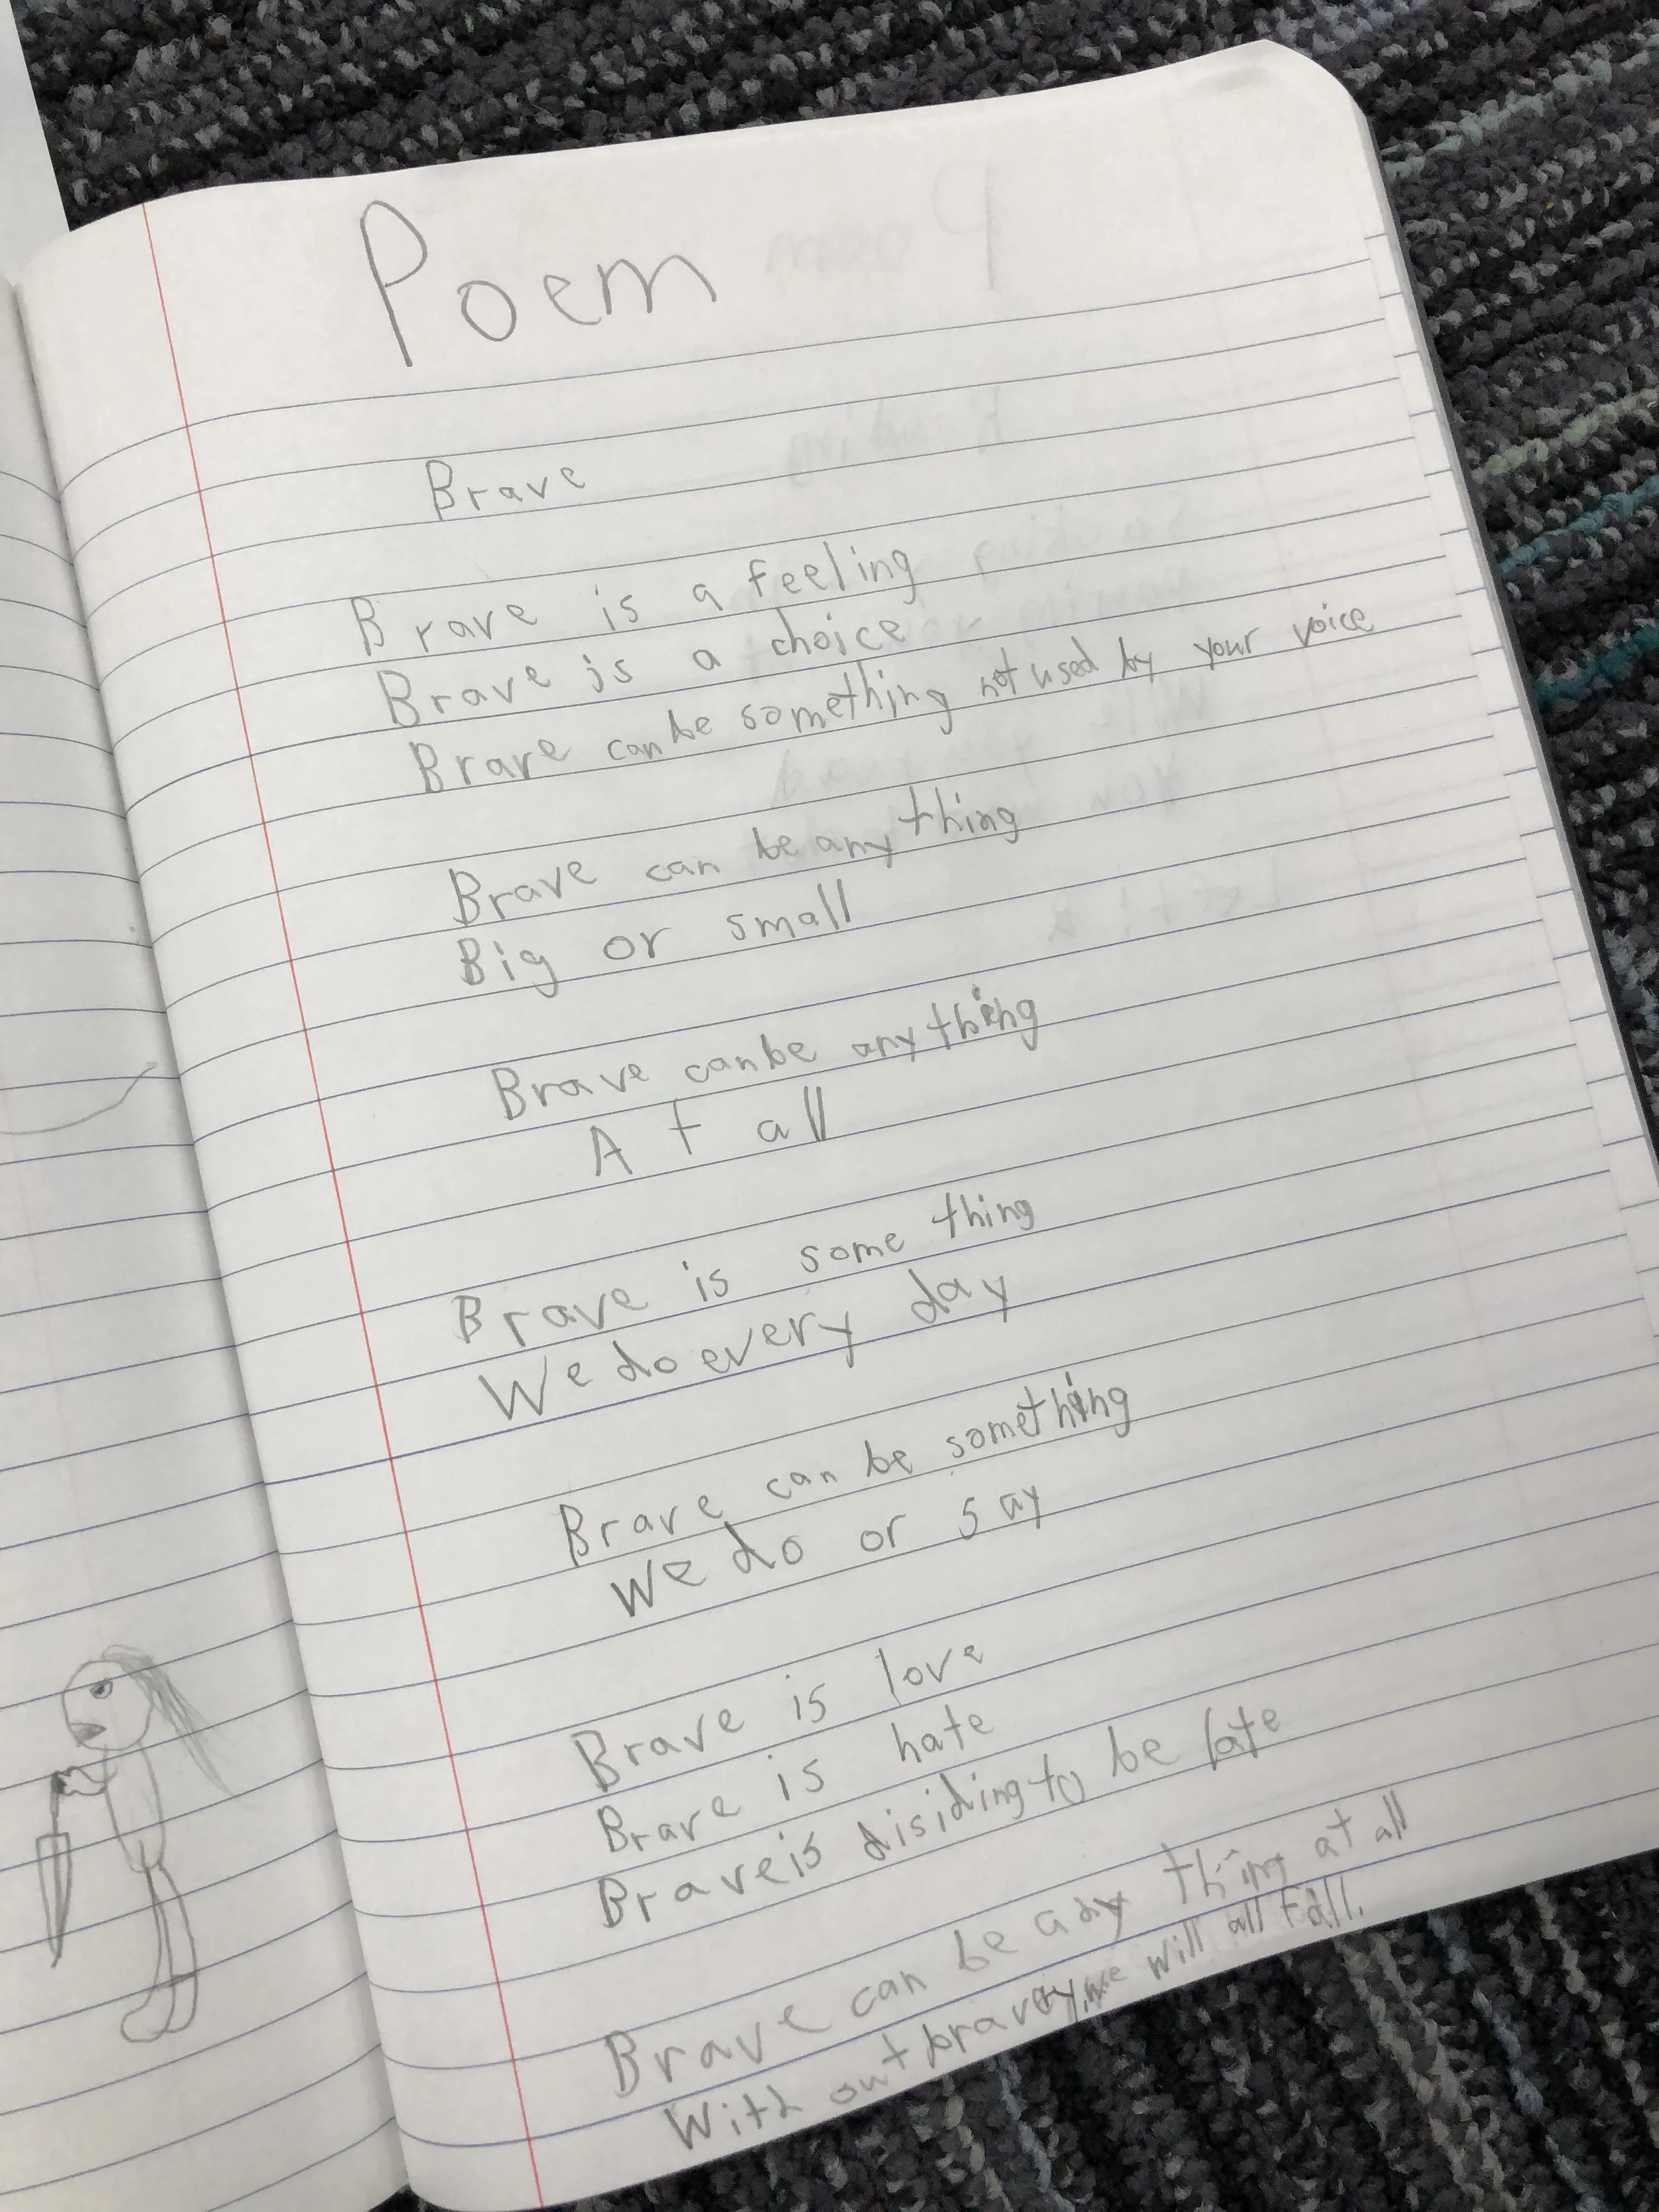 Poem
Brave
Brave is a feeling
Brave is a choice
Brave can be something not used by your voice
Brave can be any thing
Big or small
Brave can be any thing
At all
Brave is some thing
We do every day
Brave can be something
We do or say
Brave is love
Brave is hate
Brave is disiding to be late
Brave can be any thing at all
With out bravery, we will all fall.